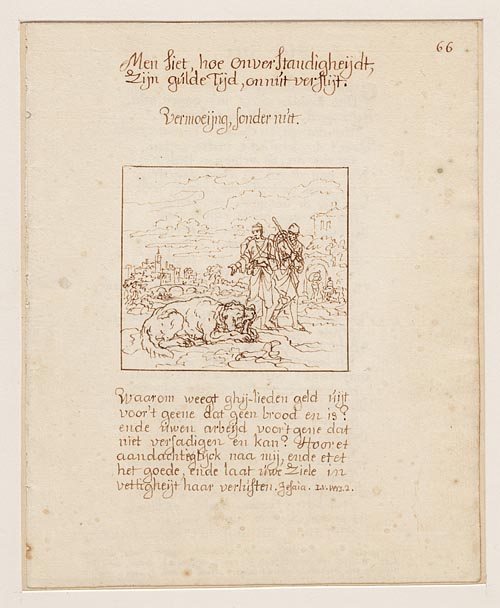 66
Men siet, hoe onverstandigheijdt,
Zijn gulde Tijd, onnut verslijt.
Vermoeijng, sonder nut.
Waarom weegt ghij-lieden geld uijt
voor't geene dat geen brood en is?
ende uwen arbeijd voor't gene dat
niet versadigen en kan? Hooret
aandachteglijck naa mij, ende etet
het goede, ende laat uwe Ziele in
vettigheijt haar verlusten. Jesaia. LV. vers. 2.